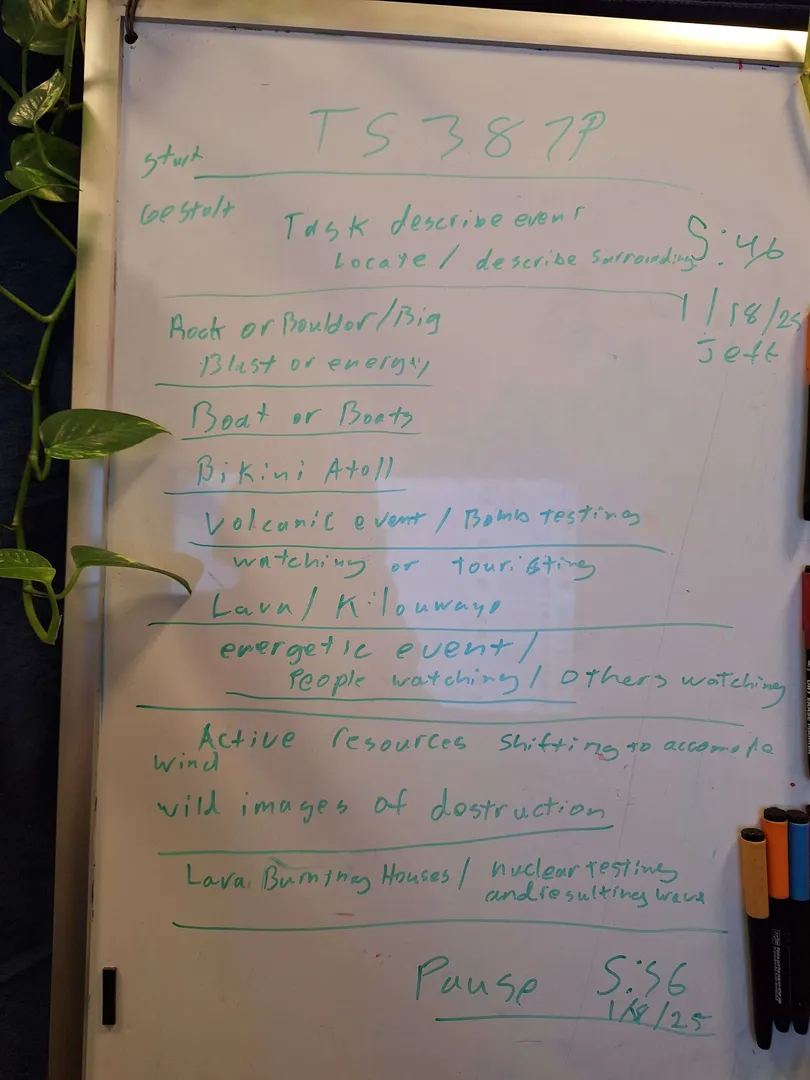 TS387P
start
Gestalt
Task describe event
Locate / describe surrounding
5:46
1/18/25
Jeff
Rock or Bouldor/Big
Blast or energy
Boat or Boats
Bikini Atoll
Volcanic event / Bomb testing
watching or touristing
Lava / Kilouwaye
energetic event /
People watching / others watching
Active resources shifting to accomote
wind
wild images of dostruction
Lava Burning Houses / nuclear testing
and resulting wave
Pause 5:56
1/8/25